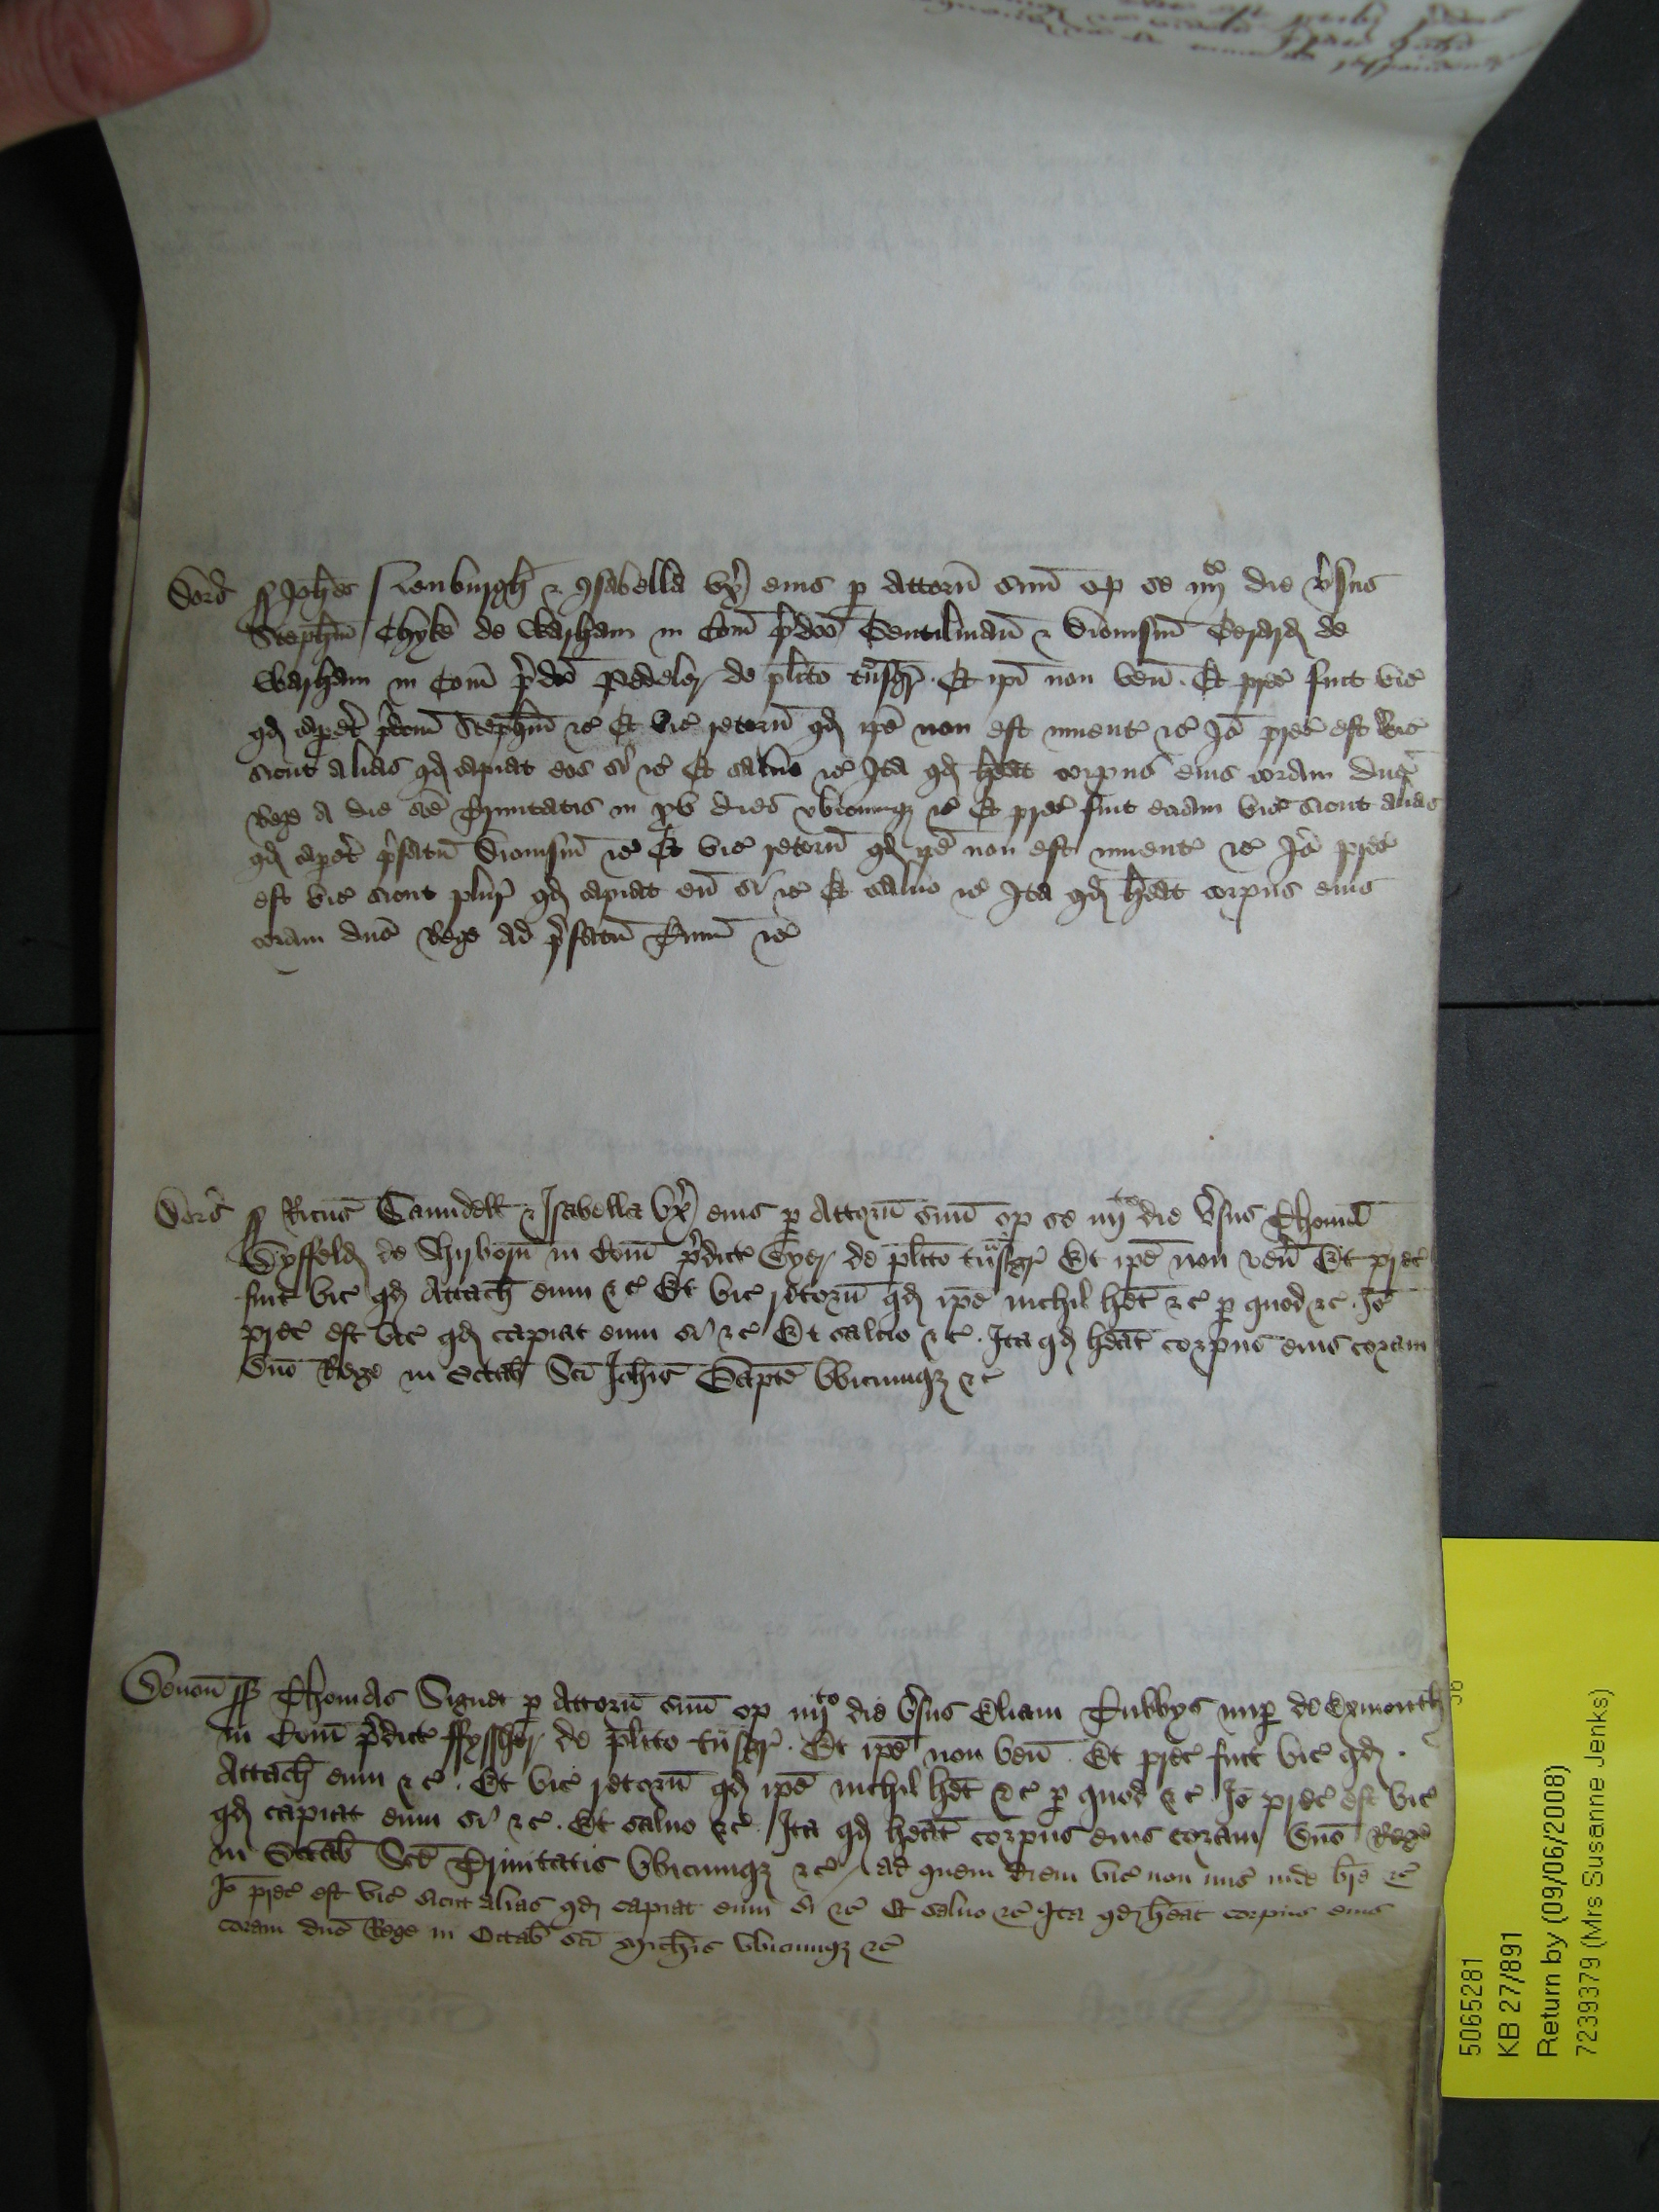 Dors' ss Joh'es Newburgh' & Isabella ux' eius p attorn' suu' op se iiijto die v'sus
Steph'm Chyke de Warham in Com' p'dco' Gentilman' & Dionisiu' Gerard de
Warham in Com' p'dco' Pedeler de pl'ito t'nsgr'. Et ip'i non ven'. Et prec' fuit vic'
qd caperet p'dcm Steph'm &c' Et vic' retorn' qd ip'e non est invent' &c' Io' prec' est vic'
sicut alias qd capiat eos si &c' Et salvo &c' Ita qd h'eat corpus eius coram dno'
Rege a die sce' Trinitatis in xv dies ubicumq; &c' Et prec' fuit eciam vic' sicut alias
qd caperet p'fatu' Dionisiu' &c' Et vic' retorn' qd ip'e non est invent' &c' Io' prec'
est vic' sicut plur' qd capiat eu' si &c' Et salvo &c' Ita qd h'eat corpus eius
coram dno' Rege ad p'fatu' t'minu' &c'
Dors' ss Ricus' & Isabella ux' eius p attorn' suu' op se iiijto die v'sus Thomam
de Shirborn' in Com' p'dict' de pl'ito t'nsgr' Et ip'e non ven' Et prec'
fuit vic' qd attach' eum &c' Et vic' retorn' qd ip'e nichil h'et &c' p quod &c'. Io'
prec' est vic' qd capiat eum si &c' Et salvo &c'. Ita qd h'eat corpus eius coram
dno' Rege in Octab' Sci' Joh'is Bapt'e ubicumq; &c'
Devon' ss Thomas Signet p attorn' suu' op iiijto die v'sus Eliam Tubbys nup de Exmouth
in Com' p'dict' ffyssher de pl'ito t'nsgr'. Et ip'e non ven'. Et prec' fuit vic' qd
attach' eum &c'. Et vic' retorn' qd ip'e nichil h'et &c' p quod &c' Io' prec' est vic'
qd capiat eum si &c'. Et salvo &c'. Ita qd h'eat corpus eius coram dno' Rege
in Octab' Sce' Trinitatis ubicumq; &c' ad quem diem vic' non mis' inde br'e &c'
Io' prec' est vic' sicut alias qd capiat eum si &c' Et salvo &c' Ita qd h'eat corpus eius
coram dno' Rege in Octab' sci' Mich'is ubicumq; &c'
5065281
KB 27/891
Return by (09/06/2008)
7239379 (Mrs Susanne Jenks)